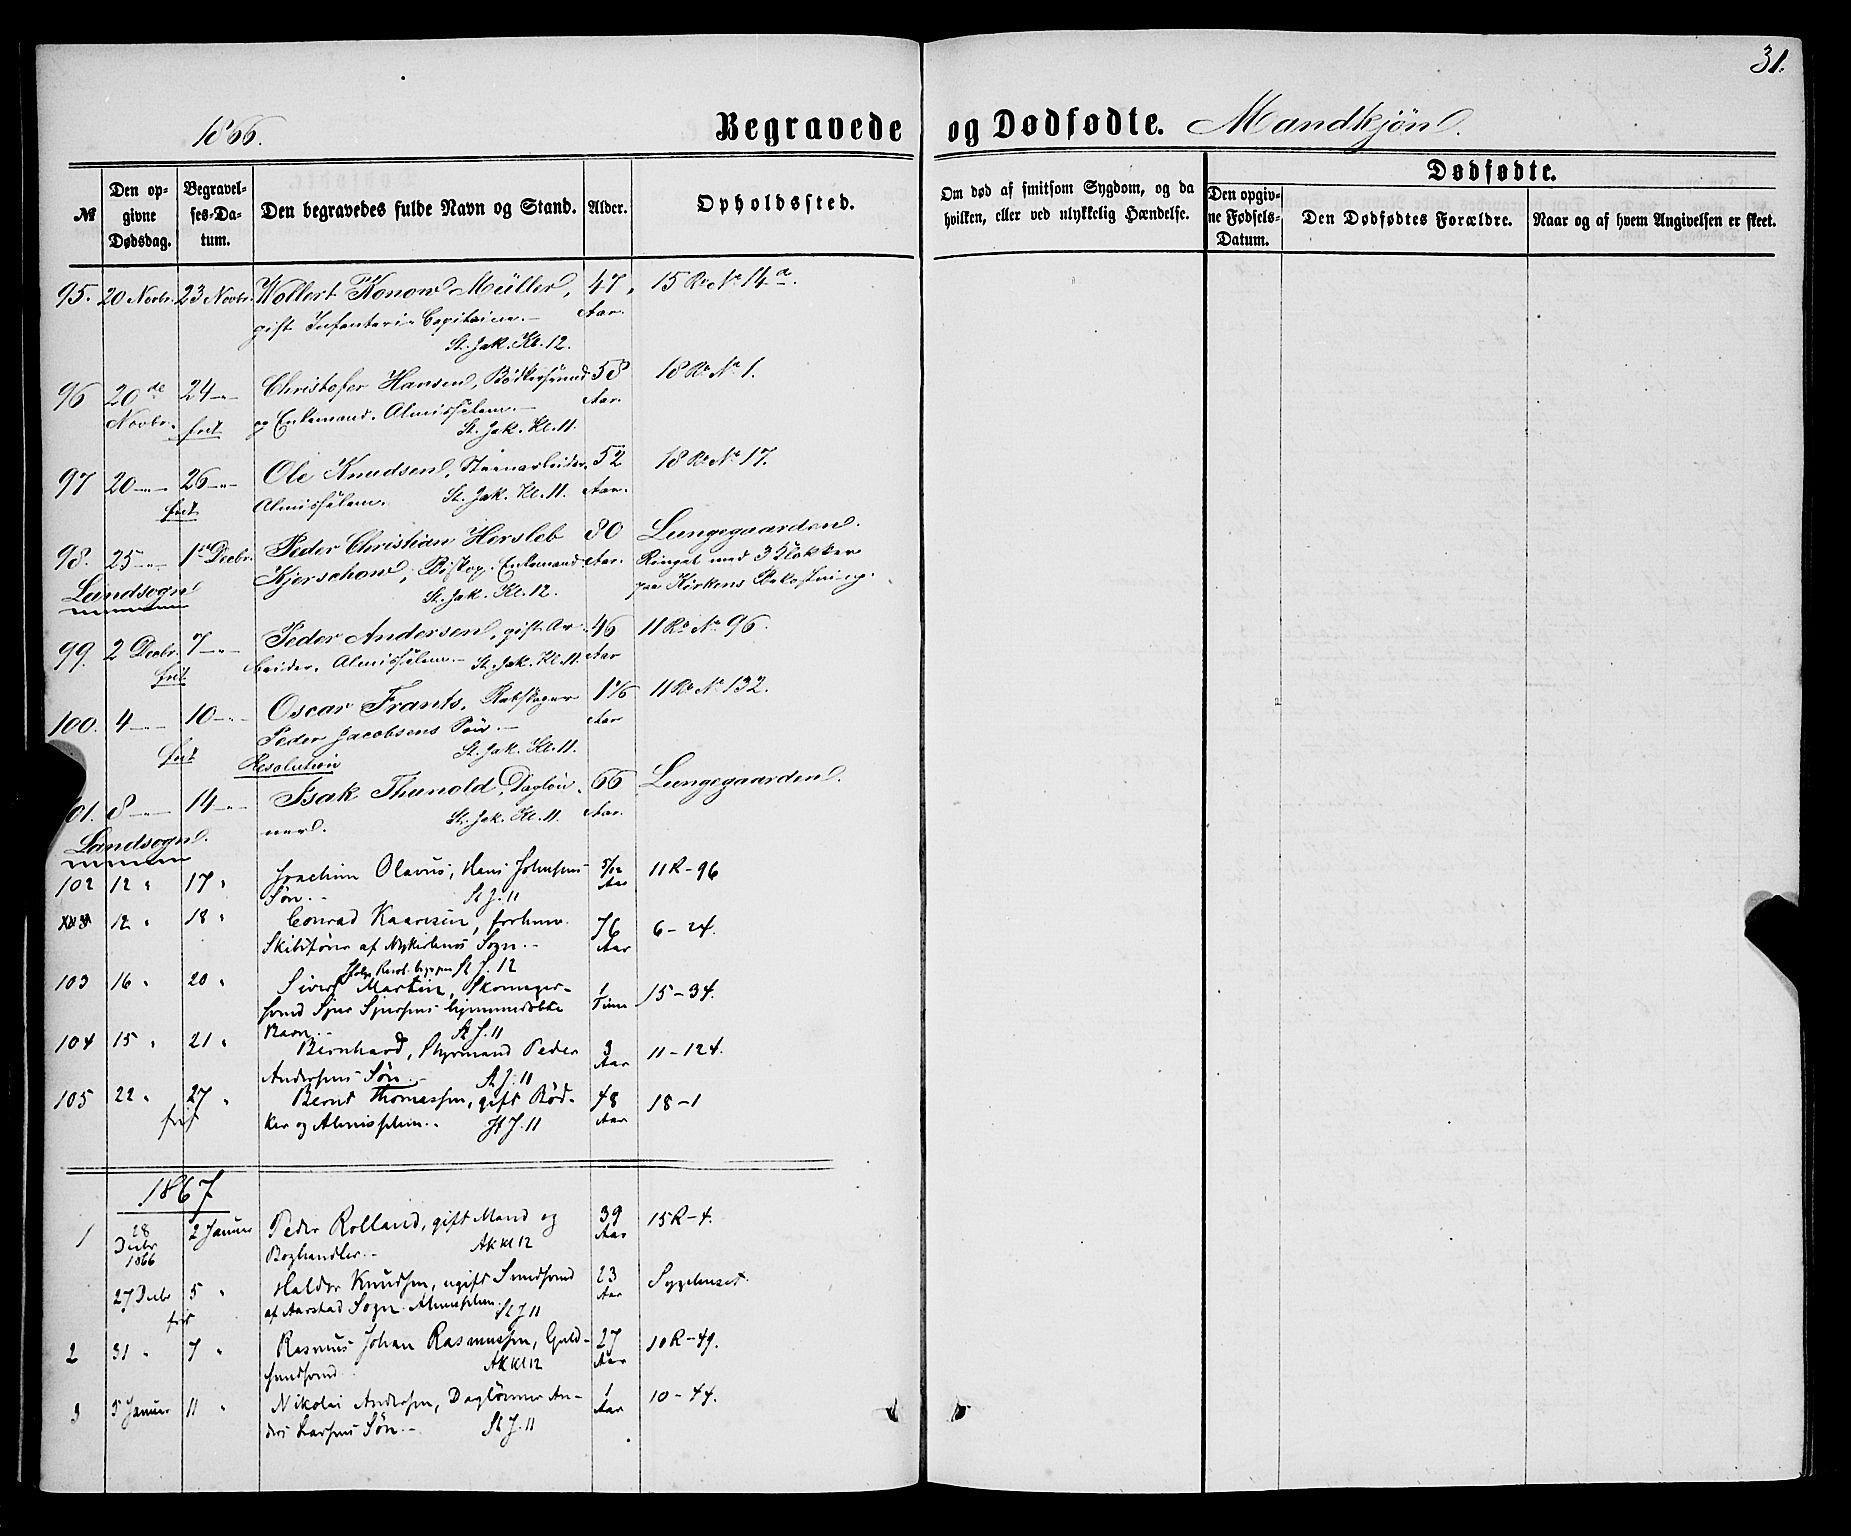 31.
1866. Begravede og Dødfødte. Mandkjøn.
№ Den opgivne Dødsdag. Begravelses-Datum. Den begravedes fulde Navn og Stand. Alder. Opholdssted. Om død af smitsom Sygdom, og da hvilken, eller ved ulykkelig Hændelse. Dødfødte. Den opgivne Fødsels-Datum. Den Dødfødtes Forældre. Naar og af hvem Angivelsen er skeet.
95. 20 Novbr. 23 Novbr. Wollert Konow Müller, 47 15 R. No 14 a.
gift Infanteri Capitaine.- Aar.
St. Jak. Kl. 12.
96 20de 24 -„- Christofer Hansen, Bødkersvend 58 18 R. No 1.
Novbr. frit og Enkemand. Almisselem.- Aar.
St. Jak. Kl. 11.
97 20 -„- 26 -„- Ole Knudsen, 52 18 R. No 17.
frit Almisselem. St. Jak. Kl. 11. Aar.
98. 25 -„- 1ste Decbr. Peder Christian Hersleb 80 Lungegaarden.
Kjerschow, Biskop. Enkemand Aar. Ringet med 3 Klokker
Landsogn St. Jak. Kl. 12. paa Kirkens Bekostning.
99. 2 Decbr. 7 -„- Peder Andersen, gift Ar- 46 11 R. No 96.
frit beider. Almisselem.- St. Jak. Kl. 11. Aar
100. 4 -„- 10 -„- Oscar Frants, 1 1/6 11 R. No 132.
Peder Jacobsens Søn.- Aar
frit St. Jak. Kl. 11.
Resolution
101. 8 -„- 14 -„- Isak Thunold, Dagløn- 66 Lungegaarden.
ner. St. Jak. Kl. 11. Aar.
Landsogn.
102 12 „ 17 „ Joachim Olavus, Hans Johnsens 5/12 11 R - 96
Søn.- St J. 11 Aar
12 „ 18 „ Conrad Kaarsen, forhenv. 76 6 - 24.
Skibsfører af Nykirkens Sogn.- Aar
St J. 12
103 16 „ 20 „ Sivert Martin, Skomager- 1 15 - 34.
svend Sjur Sjursens hjemmedøbte Time
Barn.- St J. 11
104 15 „ 21 „ Bernhard, Styrmand Peder 3 11 - 124.
Andersens Søn.- St J. 11 Aar
105 22 „ 27 „ Bernt Thomassen, gift Bød- 48 18 - 1
frit ker og Almisselem.- St J. 11 Aar
1867
1 28 Decbr 1866 2 Januar Peder Rolland, gift Mand og 39 15 R - 4.
Boghandler.- AK Kl 12 Aar
27 Decbr 5 „ Haldor Knudsen, ugift Smedsvend 23 Sygehuset.
frit af Aarstad Sogn. Almisselem. St J 11 Aar
2 31 „ 7 „ Rasmus Johan Rasmussen, Guld- 27 10 R - 49.
smedsvend. AK Kl 12 Aar
3 5 Januar 11 „ Nikolai Andersen, Daglønner An- 1 10 - 44.
ders Larsens Søn.- St J. 11 Aar